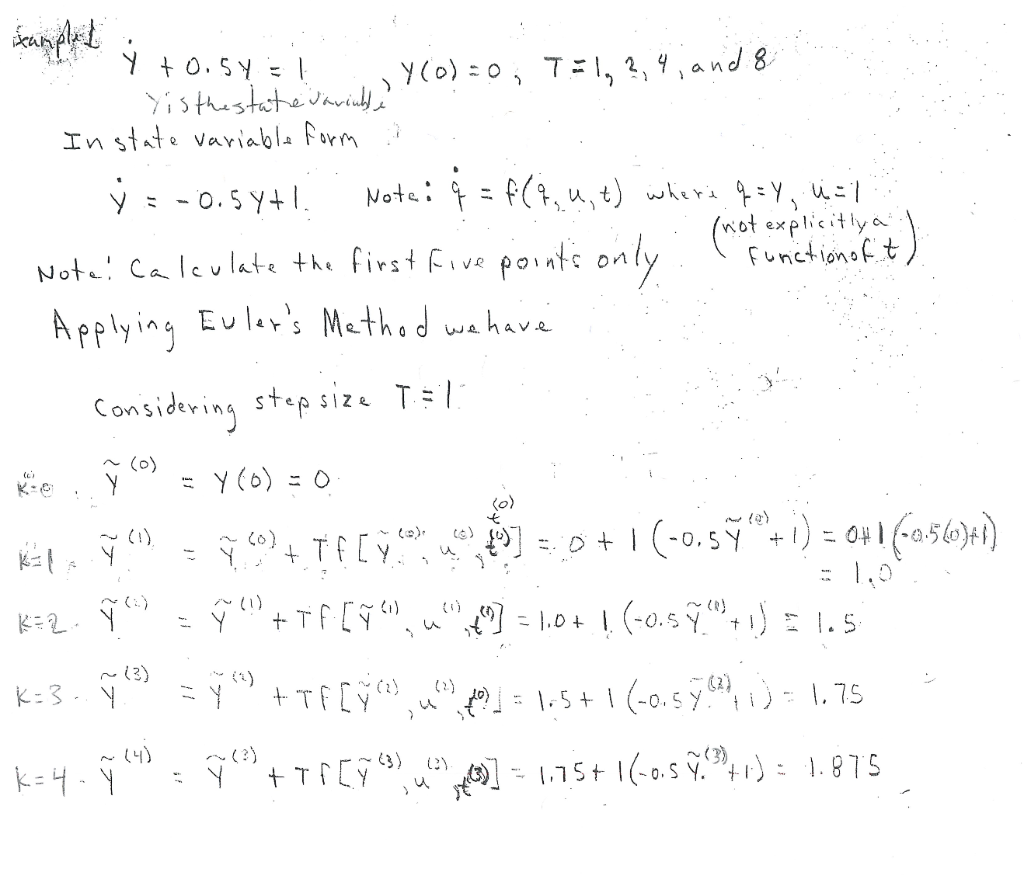 Example 1
ẏ + 0.5y = 1 , y(0) = 0, T = 1, 2, 4, and 8
y is the state variable
In state variable form
ẏ = -0.5y+1. Note: q̇ = f(q, u, t) where q=y, u=1
(not explicitly a function of t)
Note! Calculate the first five points only.
Applying Euler's Method we have
Considering step size T=1
K=0 ỹ⁽⁰⁾ = y(0) = 0
K=1 ỹ⁽¹⁾ = ỹ⁽⁰⁾ + Tf[ỹ⁽⁰⁾, u⁽⁰⁾, t⁽⁰⁾] = 0 + 1(-0.5ỹ⁽⁰⁾+1) = 0+1(-0.5(0)+1)
= 1.0
K=2 ỹ⁽²⁾ = ỹ⁽¹⁾ + Tf[ỹ⁽¹⁾, u⁽¹⁾, t⁽¹⁾] = 1.0 + 1(-0.5ỹ⁽¹⁾+1) = 1.5
K=3 ỹ⁽³⁾ = ỹ⁽²⁾ + Tf[ỹ⁽²⁾, u⁽²⁾, t⁽²⁾] = 1.5 + 1(-0.5ỹ⁽²⁾+1) = 1.75
K=4 ỹ⁽⁴⁾ = ỹ⁽³⁾ + Tf[ỹ⁽³⁾, u⁽³⁾, t⁽³⁾] = 1.75 + 1(-0.5ỹ⁽³⁾+1) = 1.875